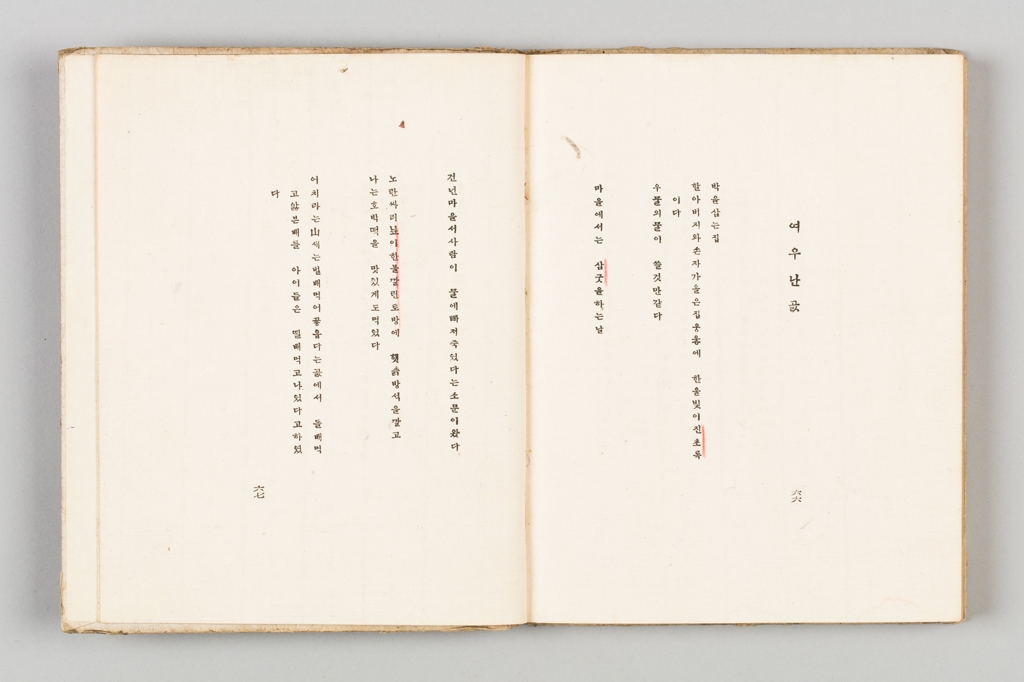 여우난곬
박을삼는집
할아버지와손자가올은집웅웋에 한울빛이진초록
이다
우물의물이 쓸것만같다
마을에서는 삼굿을하는날
六六
건넌마을서사람이 물에빠저죽었다는소문이왔다
노란싸리닢이한불깔린토방에 햇츩방석을깔고
나는호박떡을 맛있게도먹었다
어치라는山새는벌배먹어고흡다는곬에서 돌배먹
고앓븐배를 아이들은 띨배먹고나었다고하였
다
六七